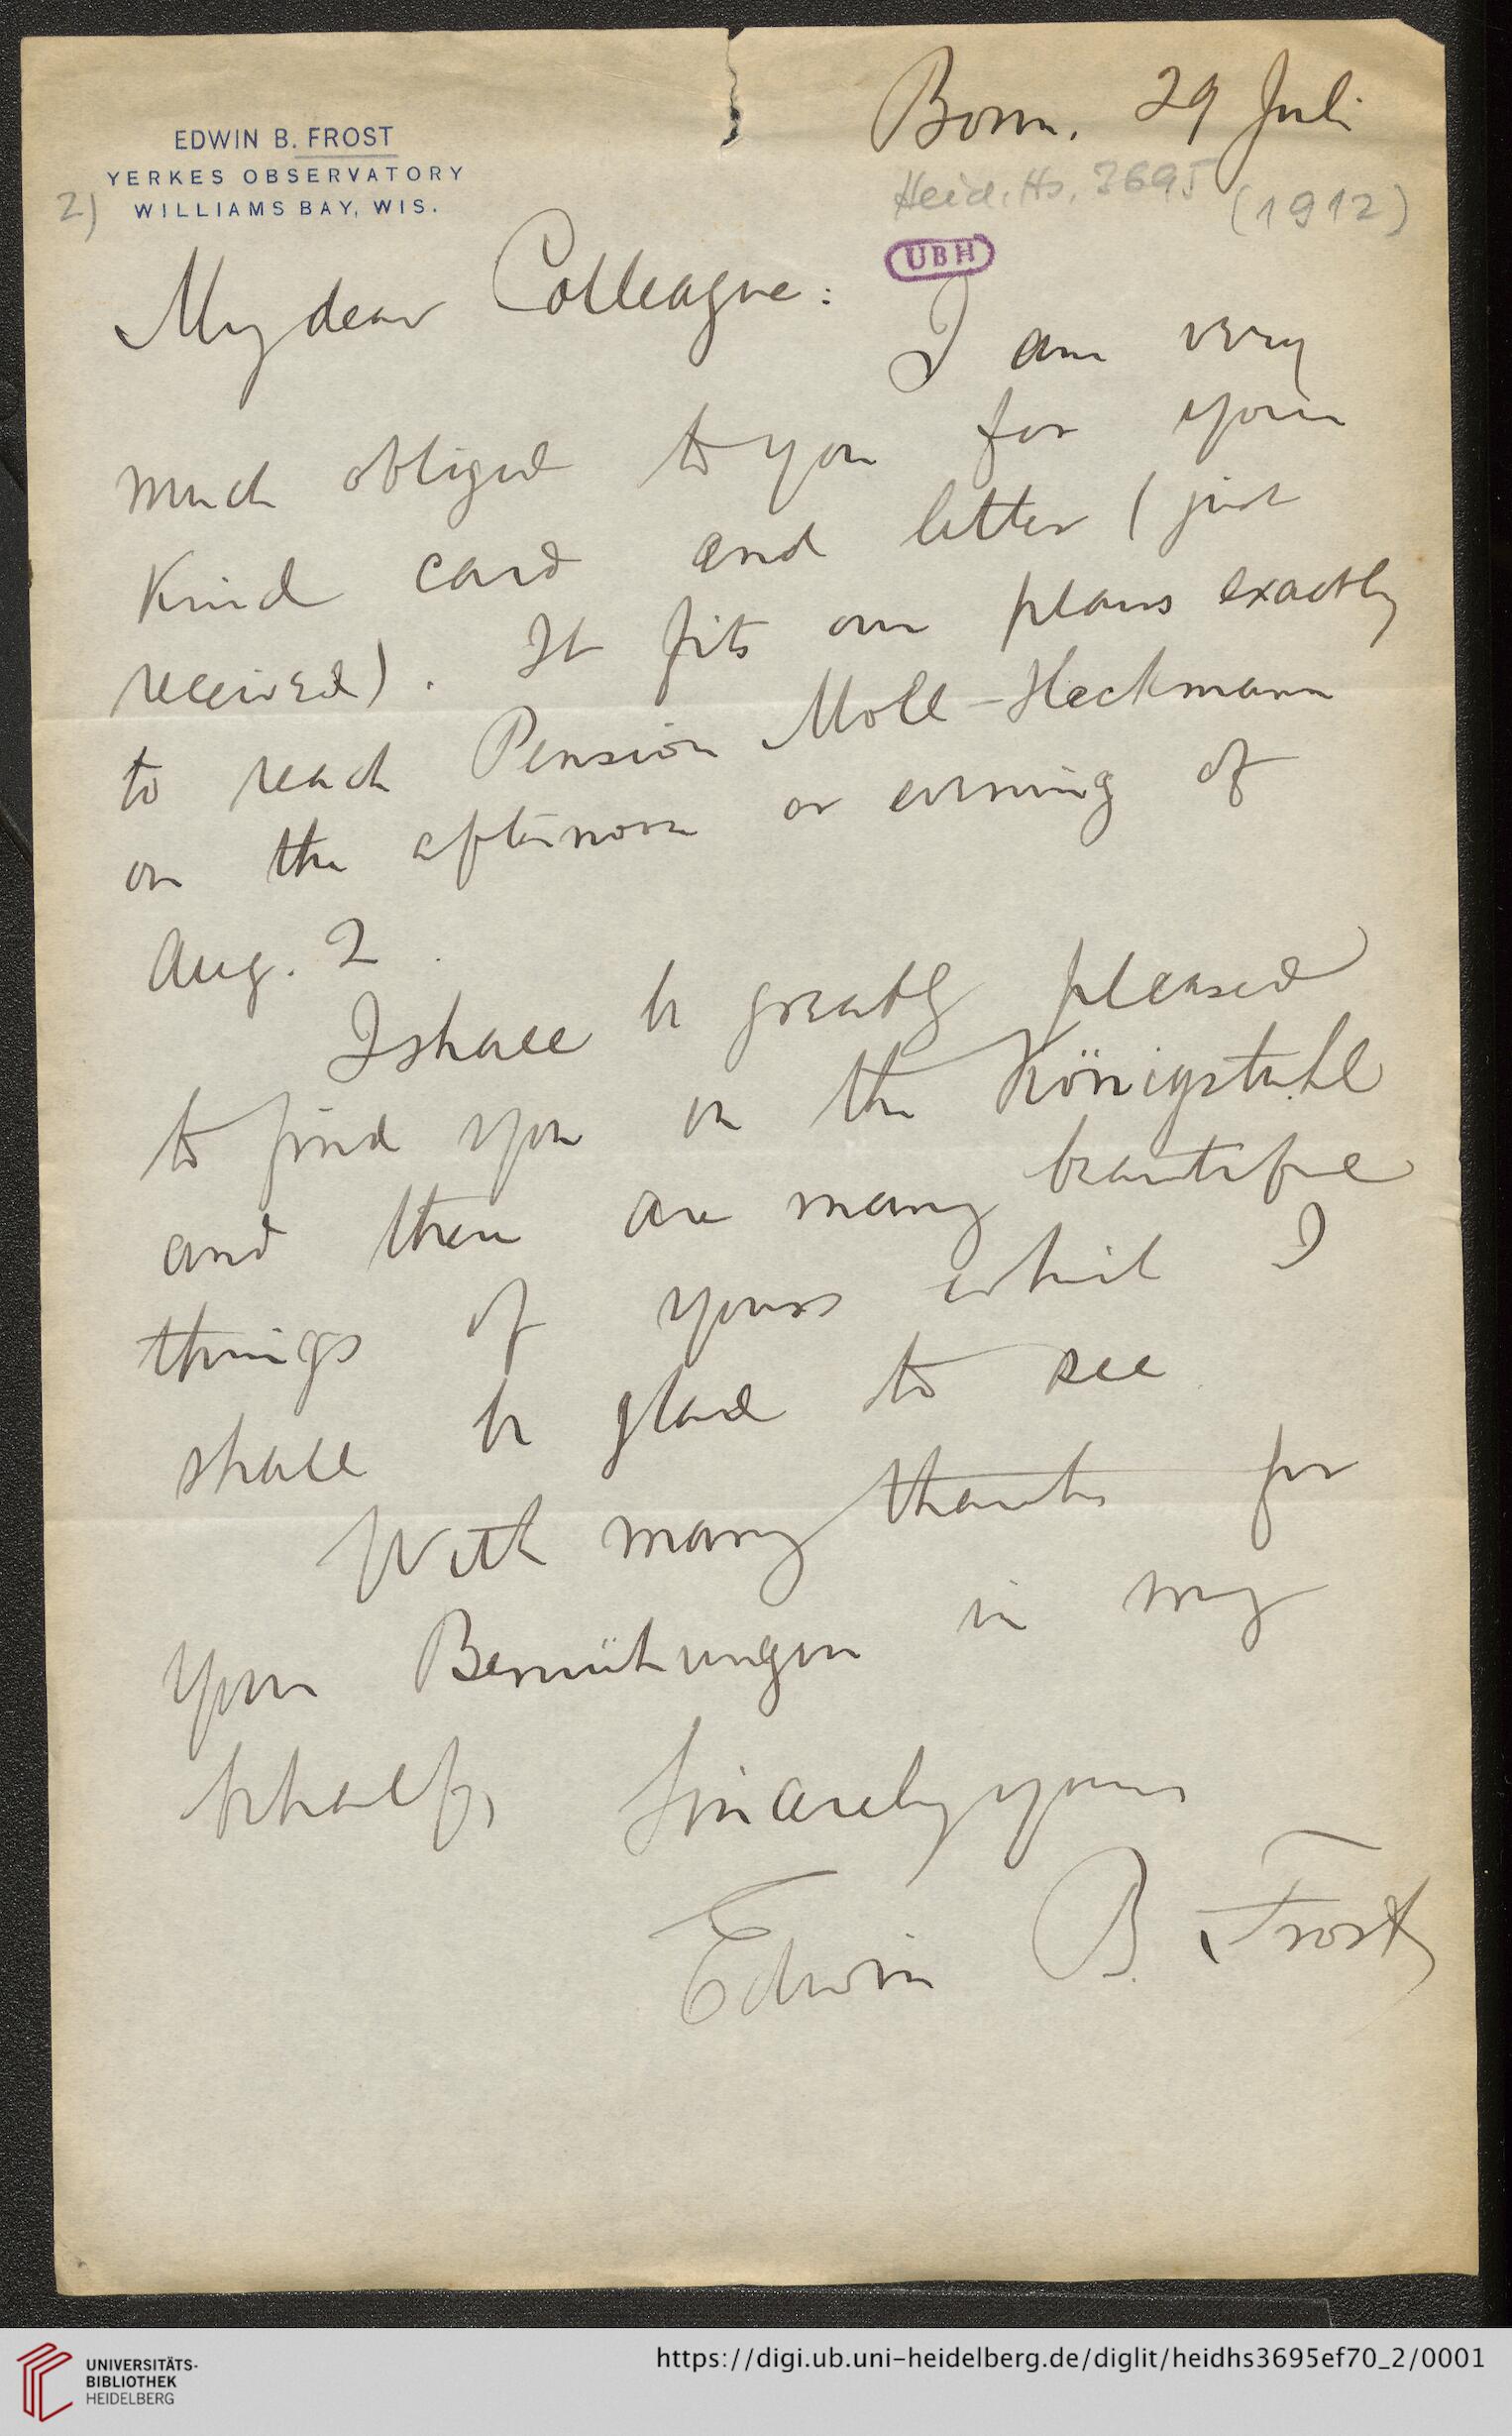 EDWIN B. FROST
YERKES OBSERVATORY
WILLIAMS BAY, WIS.
2)
Bonn, 29 Juli
Heid. Hs. 3695
(1912)
UBH
My dear Colleague:
I am very
much obliged to you for your
kind card and letter (just
received). It fits our plans exactly
to reach Pension Moll-Heckmann
on the afternoon or evening of
Aug. 2.
I shall be greatly pleased
to find you on the Königstuhl
and there are many beautiful
things of yours which I
shall be glad to see.
With many thanks for
your Bemühungen in my
behalf,
Sincerely yours
Edwin B. Frost
UNIVERSITÄTS-
BIBLIOTHEK
HEIDELBERG
https://digi.ub.uni-heidelberg.de/diglit/heidhs3695ef70_2/0001